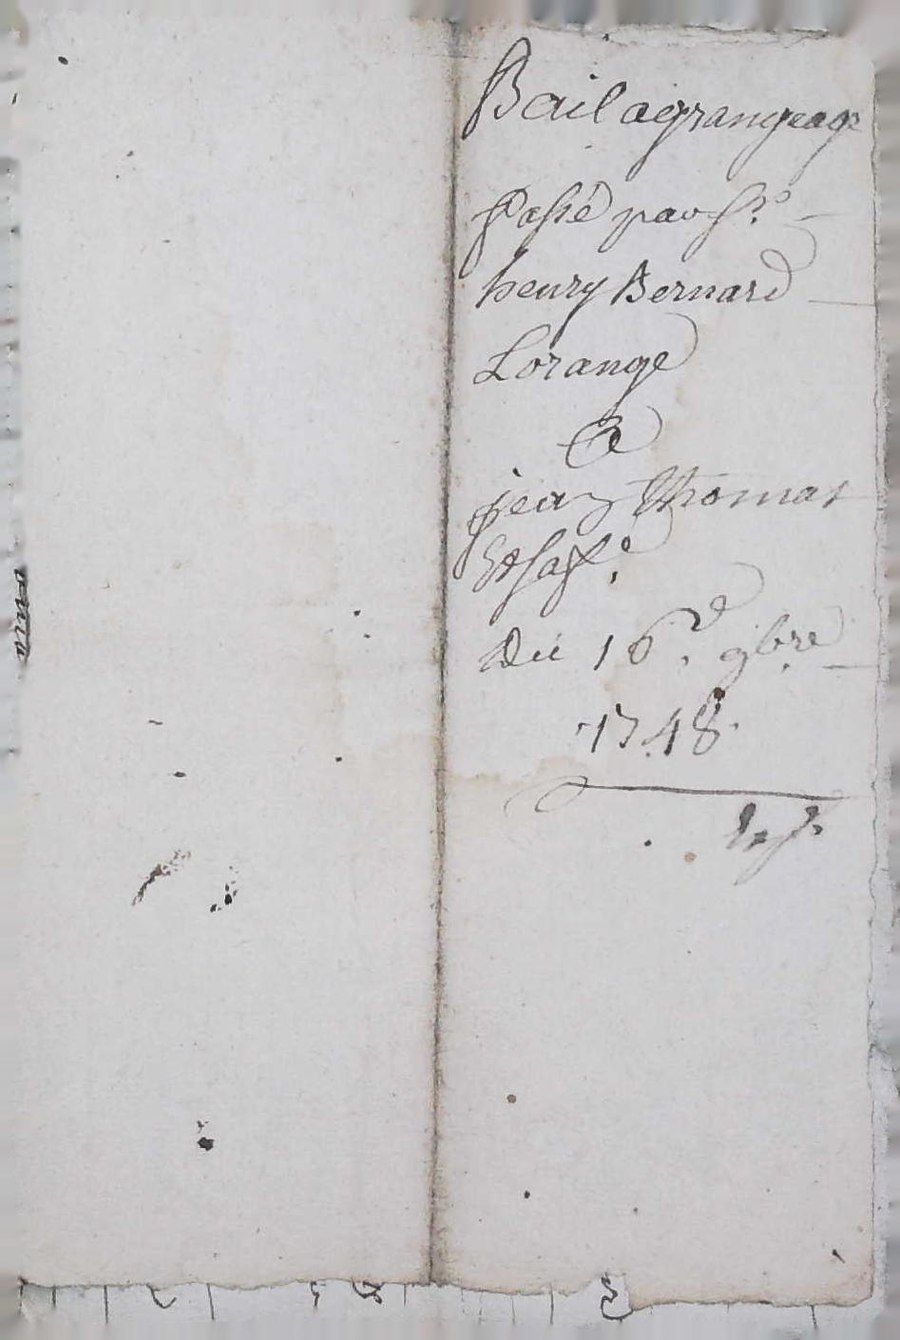 Bail agrangeage
passé par Sr.
henry Bernard
Lorange
a
jean Thomas
Et sa fe.
Du 16.e 9bre
1748